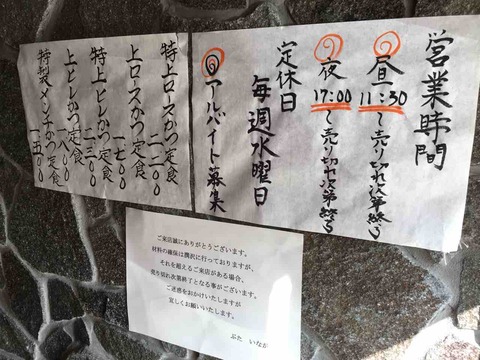 営業時間
昼 11:30〜売り切れ次第終う
夜 17:00〜売り切れ次第終う
定休日
毎週水曜日
◎アルバイト募集
特上ロースかつ定食 二二〇〇
上ロースかつ定食 一七〇〇
特上ヒレかつ定食 二三〇〇
上ヒレかつ定食 一八〇〇
特製メンチかつ定食 一五〇〇
ご来店誠にありがとうございます。
材料の確保は潤沢に行っておりますが、
それを超えるご来店がある場合、
売り切れ次第終了となる事がございます。
ご迷惑をおかけいたしますが
宜しくお願いいたします。
ぶた いなか